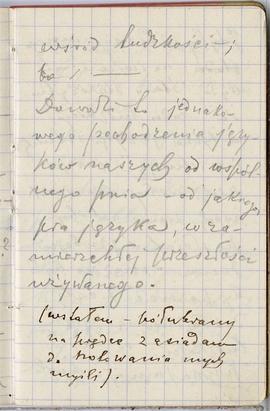 wśród ludzkości –;
to / —
Dowodzi to jednako-
wego pochodzenia języ-
ków naszych od wspól-
nego pnia – od jakiegoś
pra języka, w za-
mierzchłej przeszłości
używanego.
(wstałem – półubrany
na prędce zasiadam
do notowania mych
myśli).